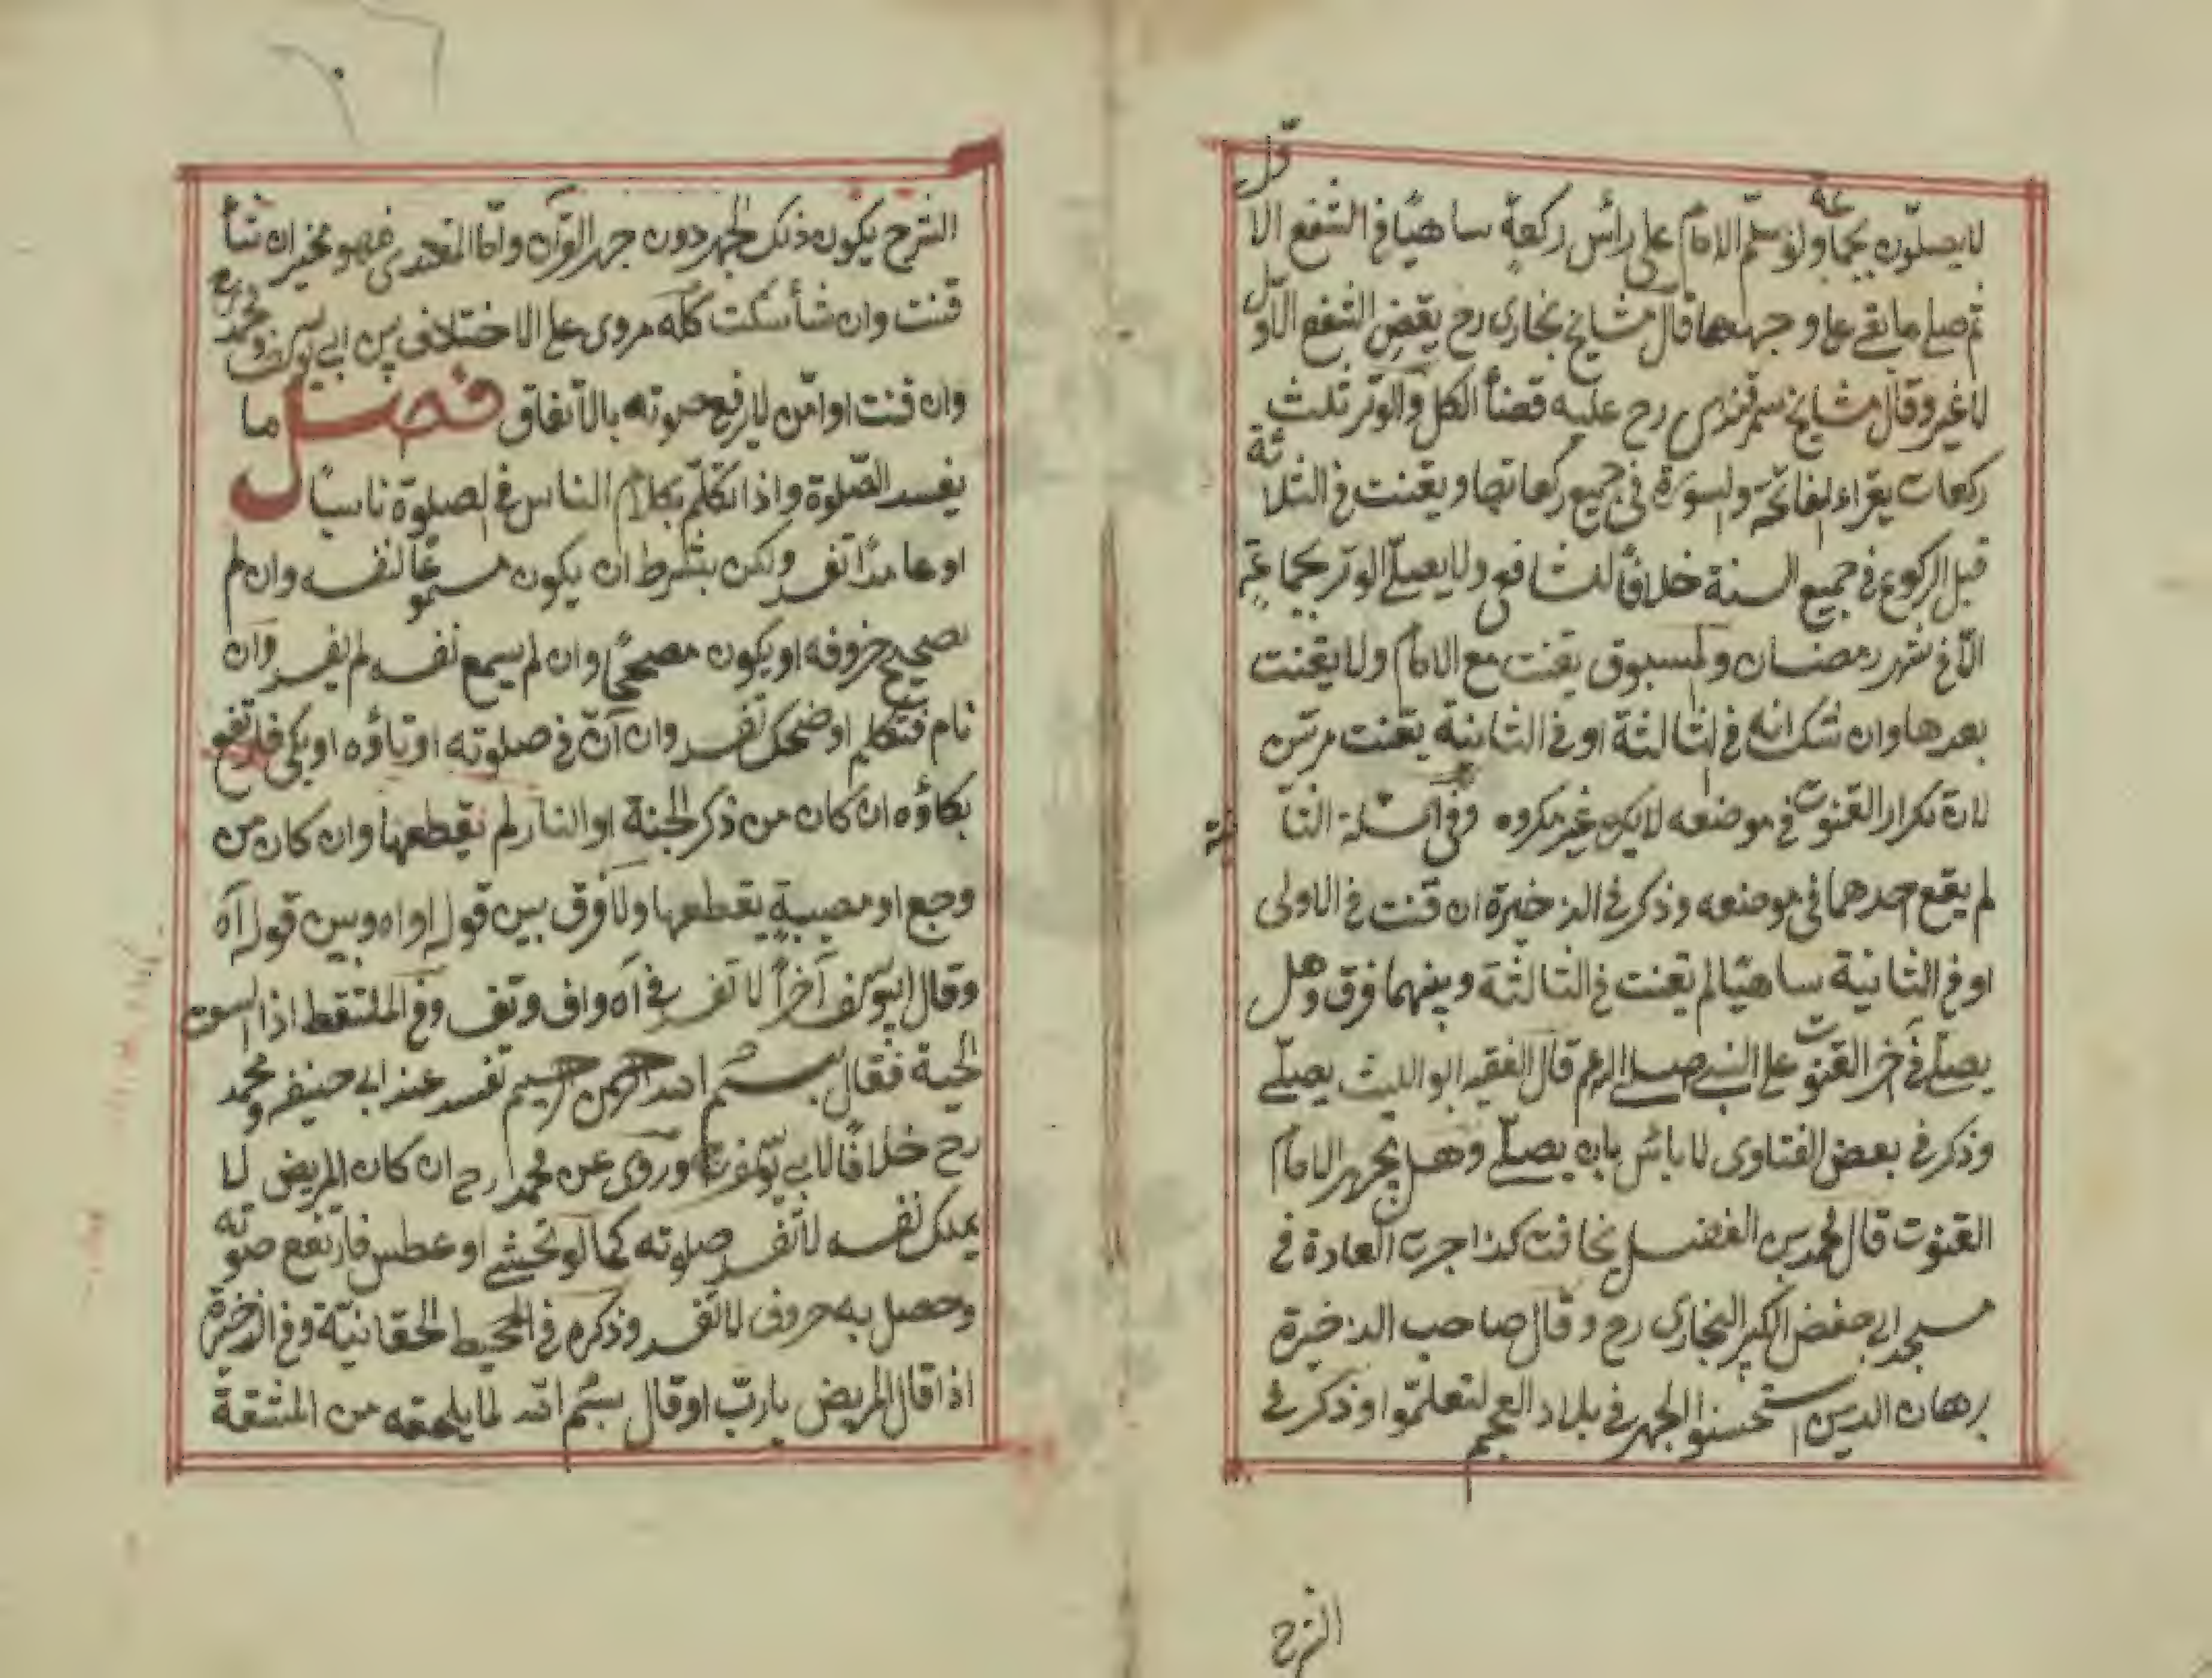 لا يصلّون بجماعة ولو سلّم الامام على رأس ركعة ساهيًا في الشفع الاوّل
ثم صلى ما بقى على وجهها قال مشايخ بخارى رح يقضى الشفع الاوّل
لا غير وقال مشايخ سمرقندى رح عليه قضأ الكل والوتر ثلث
ركعات يقراء الفاتحة والسورة في جميع ركعاتها ويقنت في الثلاثة
قبل الركوع في جميع السنة خلافًا للشافعى ولا يصلّى الوتر بجماعة
الّا في شهر رمضان والمسبوق يقنت مع الامام ولا يقنت
بعدها وان شك انه في الثالثة او في الثانية يقنت مرتين
لان تكرار القنوت في موضعه لا يكن غير مكروه وفي مسئلة الثا
لم يقع احدهما في موضعه وذكر في الذخيرة ان قنت في الاولى
او في الثانية ساهيًا لم يقنت في الثالثة وبينهما فرق وهل
يصلّى في آخر القنوت على النبى صلى الله عم قال الفقيه ابو الليث يصلّى
وذكر في بعض الفتاوى لا بأس بان يصلّى وهل يجهر الامام
القنوت قال محمد بن الفضل يخافت كذا جرت العادة في
مسجد ابى حفض الكبير البخارى رح وقال صاحب الذخيرة
برهان الدين استحسنوا الجهر في بلاد العجم ليتعلّموا وذكر في
الشرح
الشرح يكون ذلك الجهر دون جهر القرآن وامّا المقتدى فهو مخيّر ان شأ
قنت وان شأ سكت كله مروى على الاختلاف بين ابى يوسف ومحمد رح
وان قنت او امّن لا يرفع صوته بالاتفاق فصل ما
يفسد الصّلوة واذا تكلّم بكلام الناس في الصلوة ناسيًا
او عامدًا تفسد ولكن بشرط ان يكون مسموعًا لنفسه وان لم
يصحيح حروفه او يكون مصححًا وان لم يسمع نفسه لم يفسد وان
نام فتكلم او ضحك تفسد وان انّ في صلوته او تأوّه او بكى فارتفع
بكاؤه ان كان من ذكر الجنة او النار لم يقطعها وان كان من
وجع او مصيبة يقطعها ولا فرق بين قوله اواه وبين قوله آه
وقال ابو يوسف آخرًا لا تفسد في آه واف وتف وفي الملتقط اذا لسعت
الحية فقال بسم الله الرحمن الرحيم تفسد عند ابى حنيفه ومحمد
رح خلافًا لابى يوسف وروى عن محمد رح ان كان المريض لا
يملك نفسه لا تفسد صلوته كما لو تجشى او عطس فارتفع صوته
وحصل به حروف لا تفسد وذكره في المحيط الحقانيّة وفي الذخيرة
اذا قال المريض يا ربّ او قال بسم الله لما يلحقه من المشقة